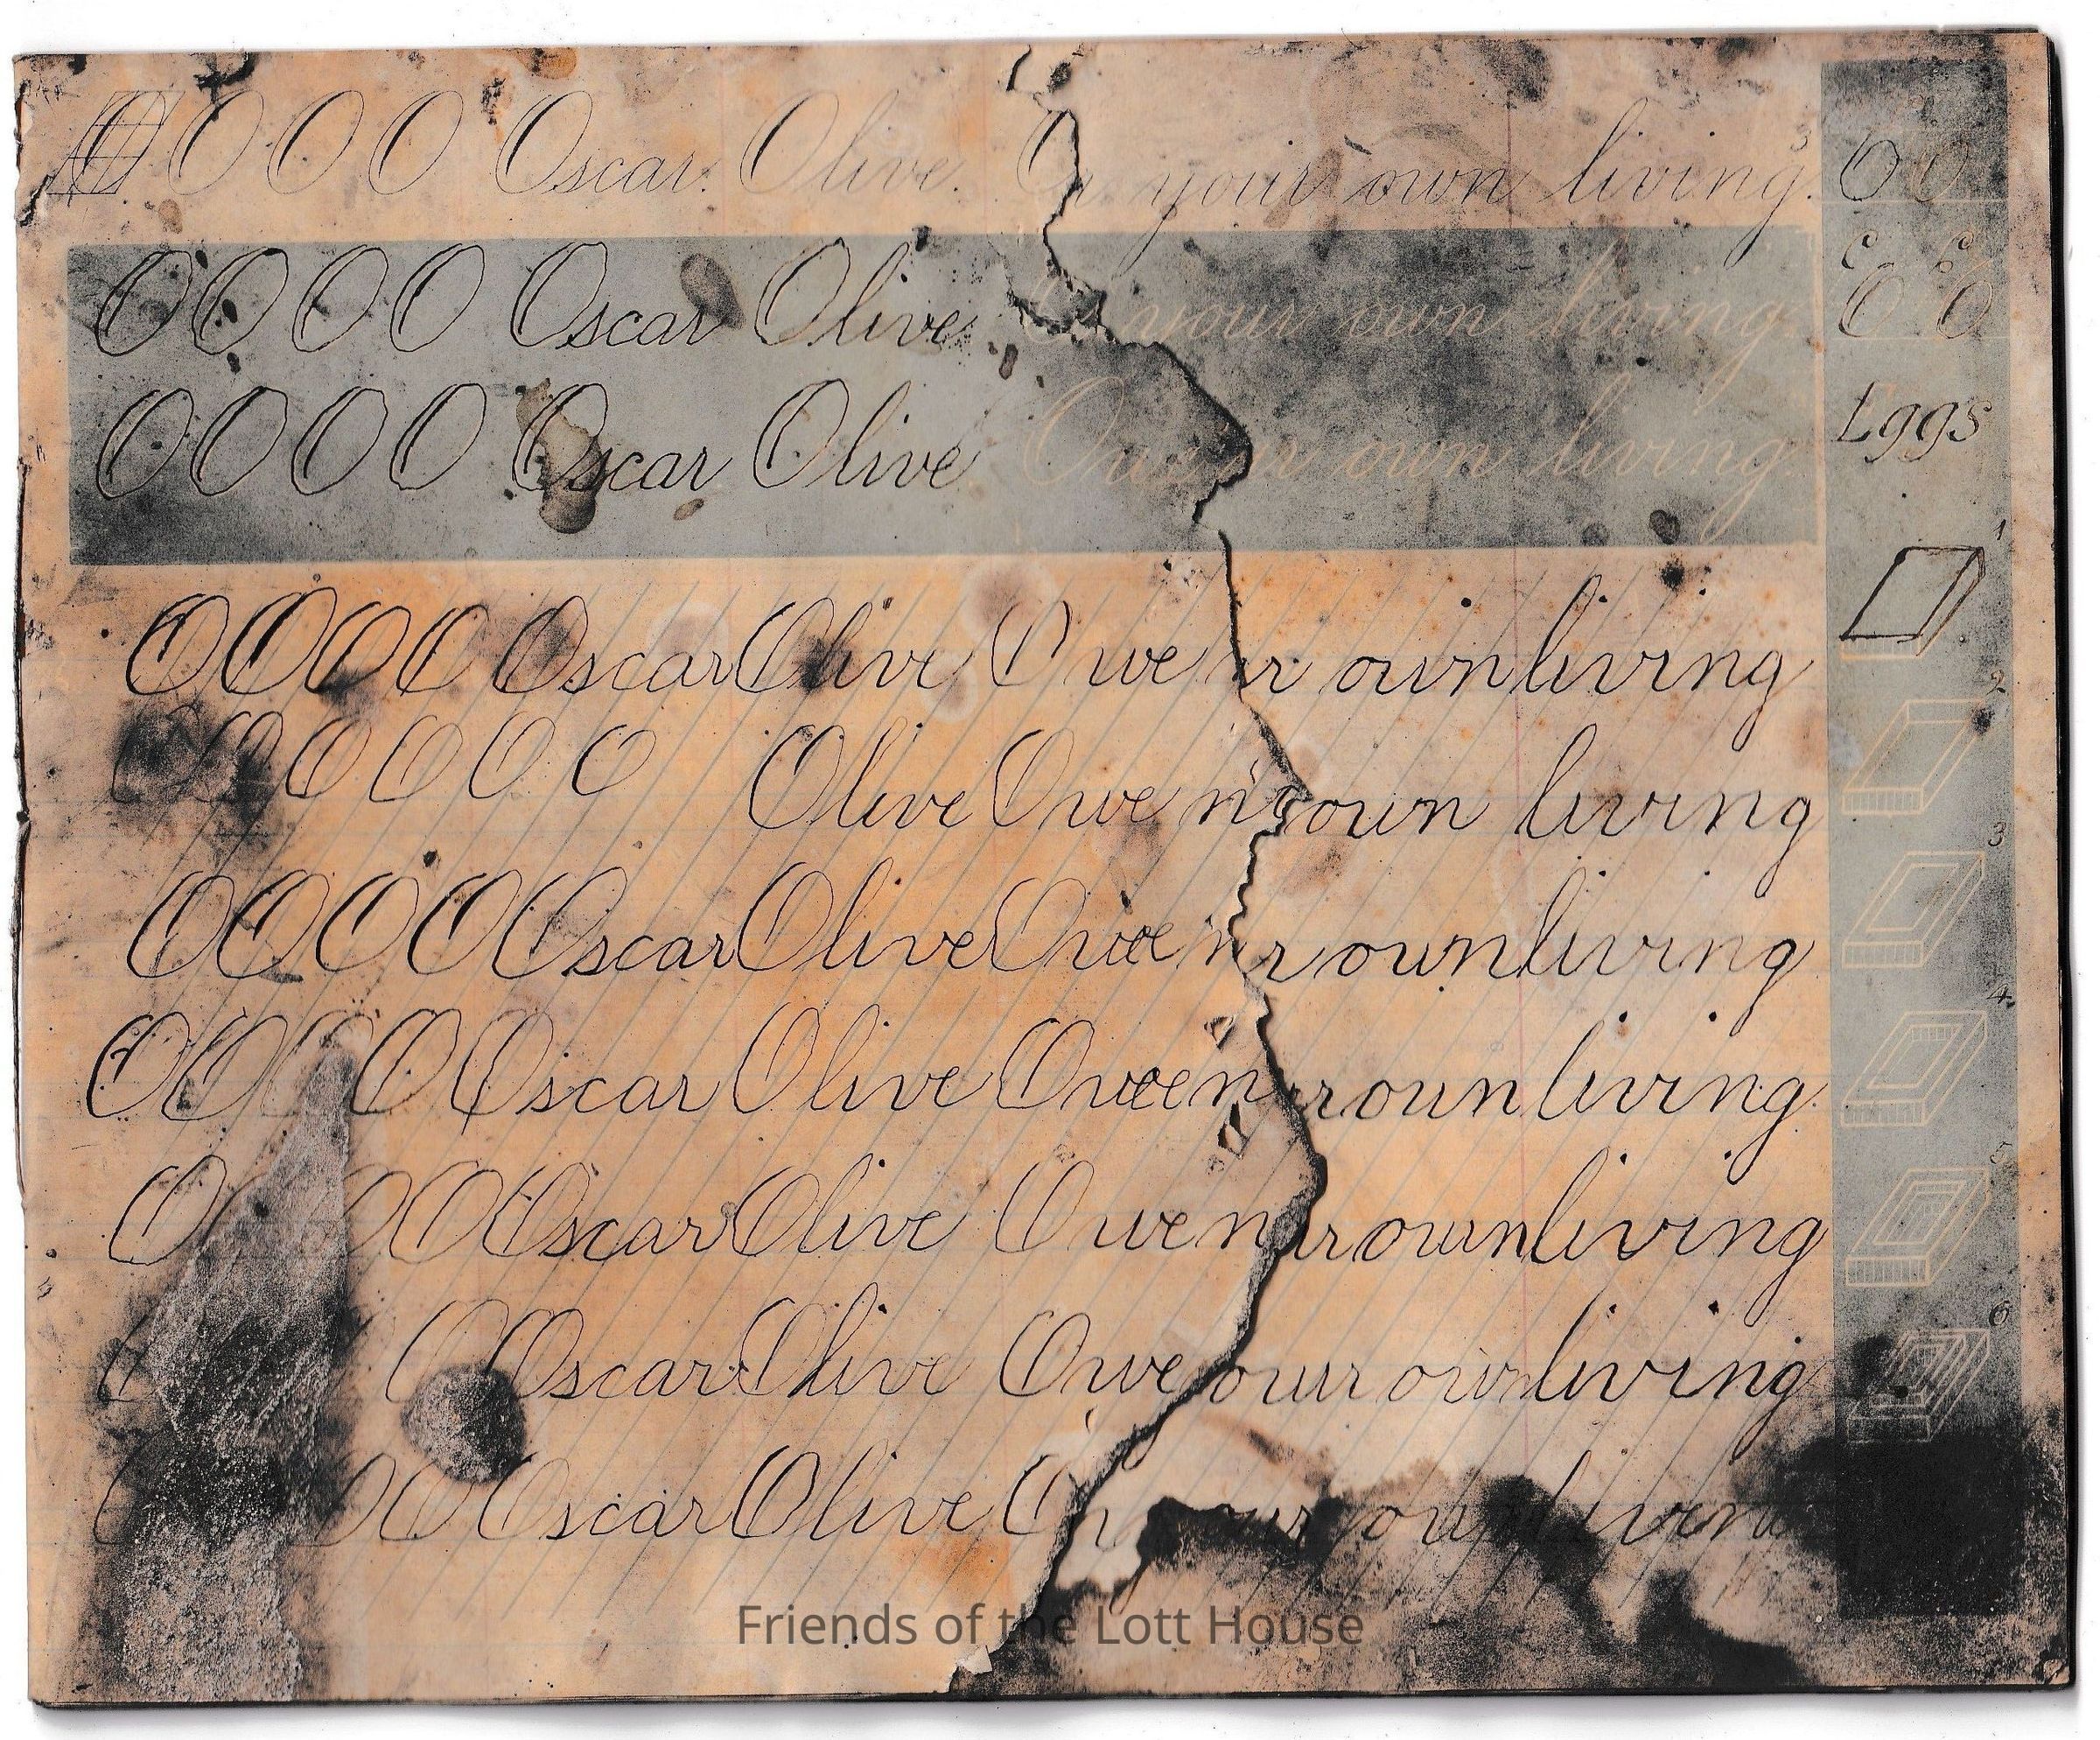 O O O O Oscar. Olive. O your own living.
O O O O Oscar Olive your own living.
O O O O Oscar Olive Ou own living.
O O O O Oscar Olive Owe r own living
O O O O O O Olive Owe n own living
O O O O Oscar Olive Owe n r own living
O O O O Oscar Olive Oween r own living.
O O O Oscar Olive Owen r own living
O Oscar Olive Owe our own living
O O Oscar Olive O our own livin
O O
c c
O O
Eggs
1
2
3
4
5
6
Friends of the Lott House